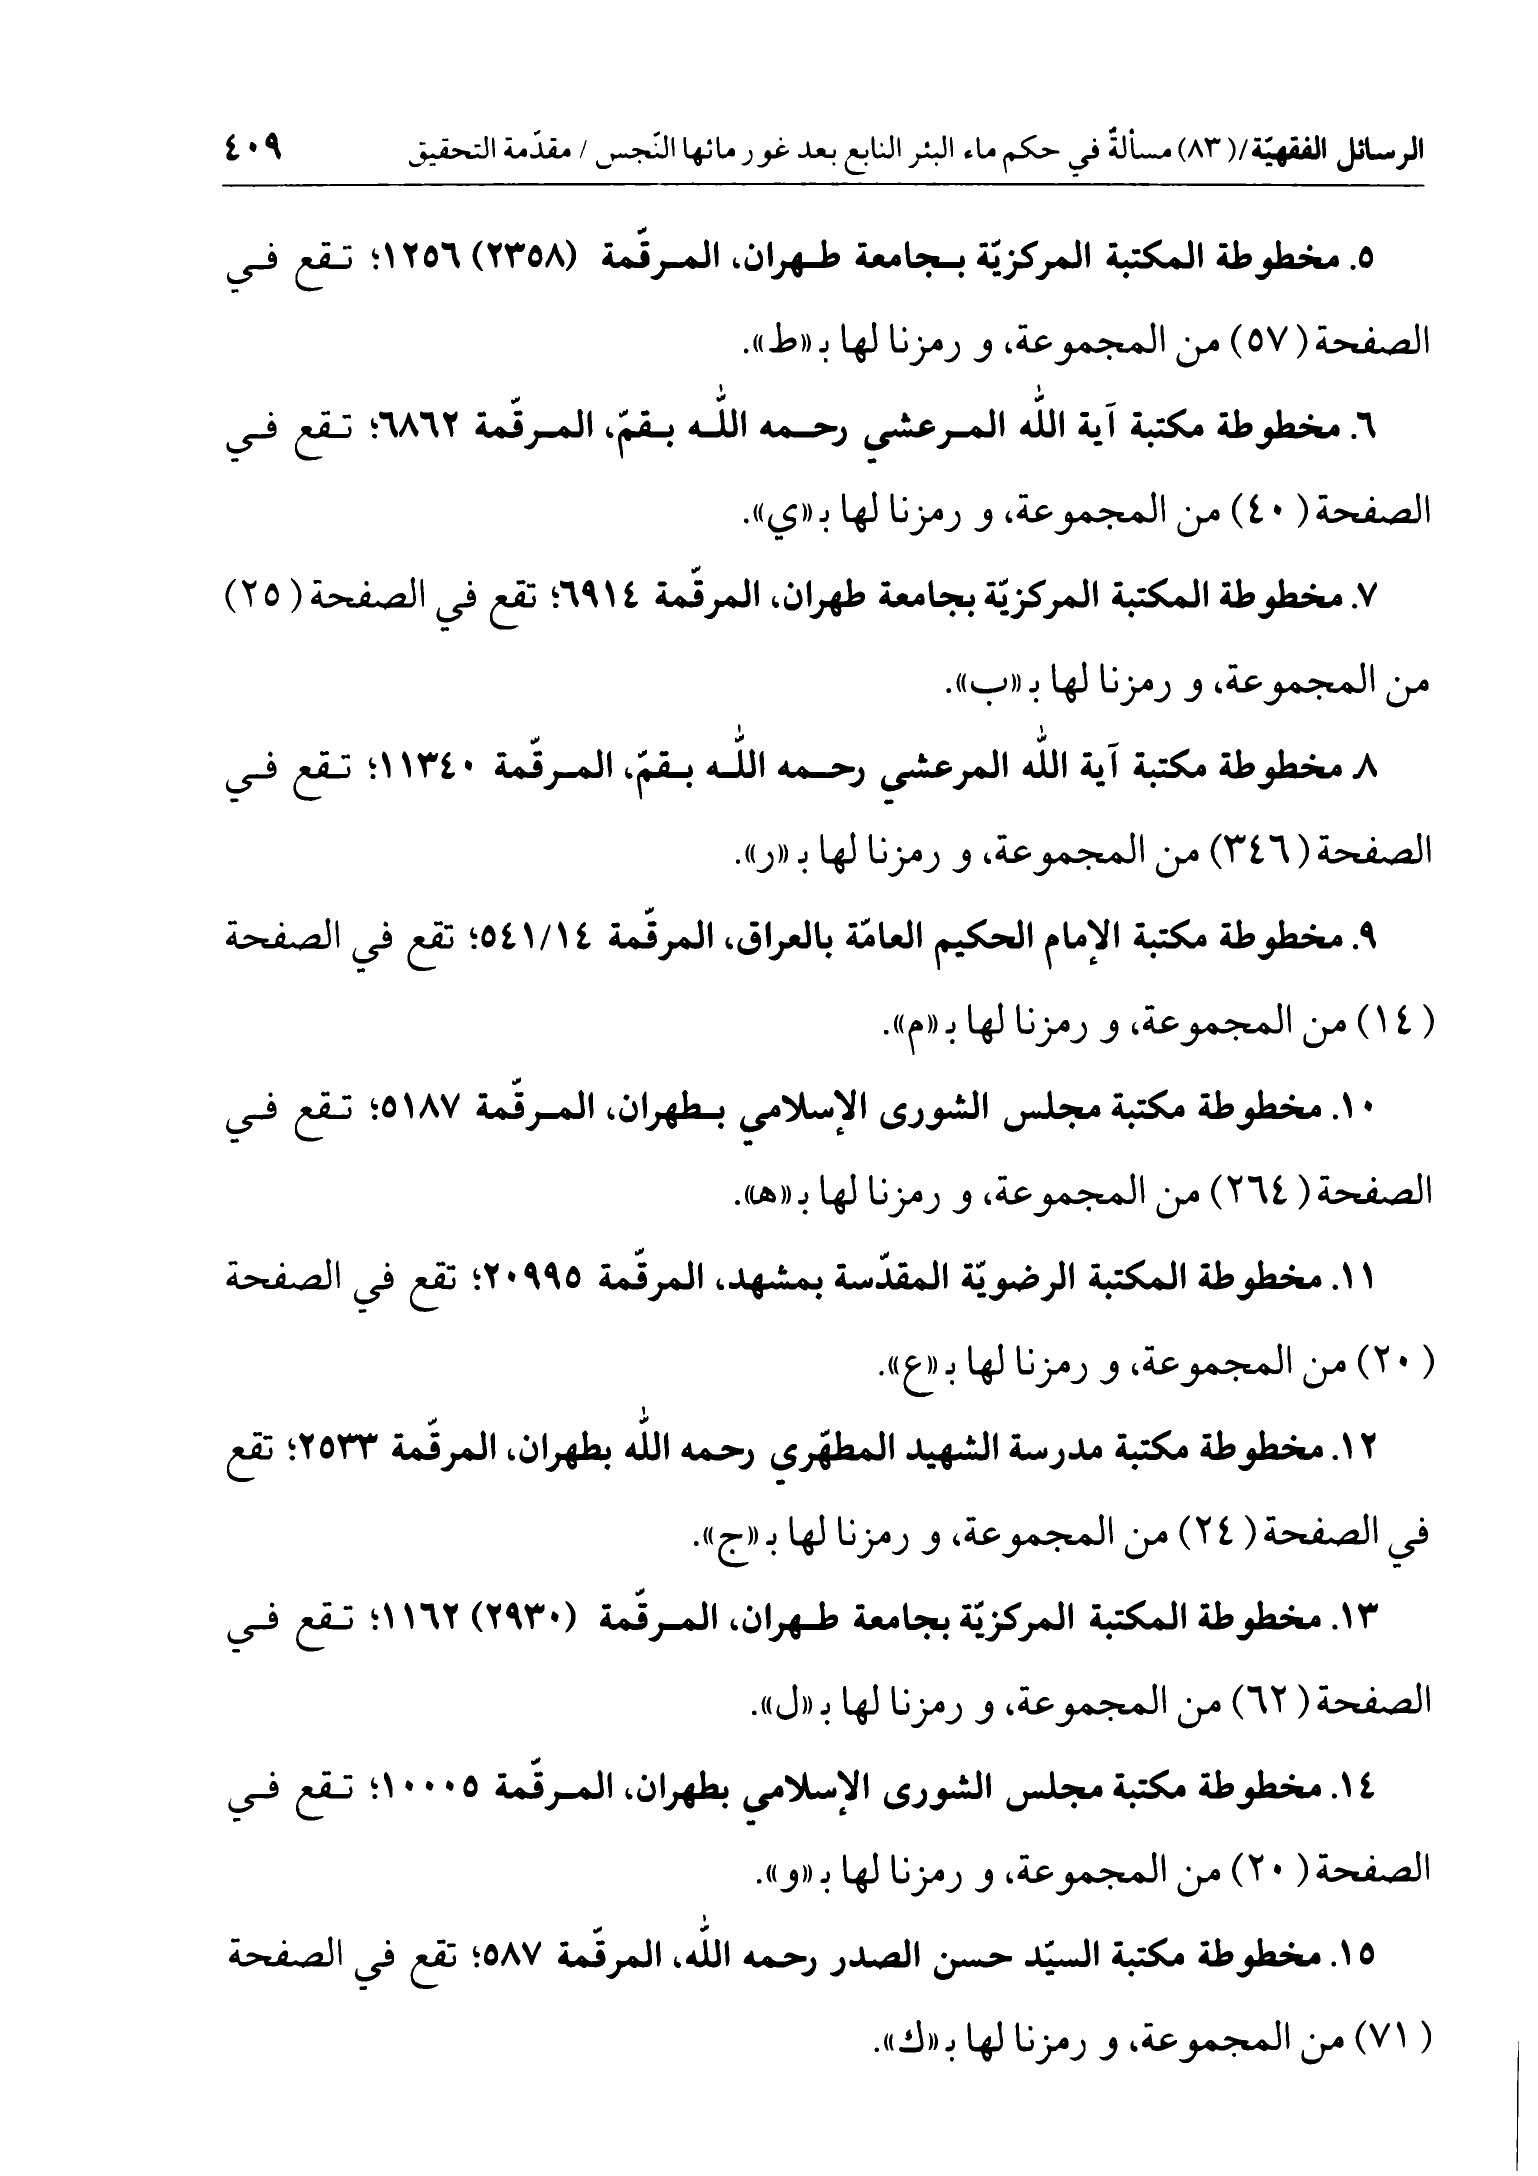 الرسائل الفقهيّة/(٨٣) مسألةٌ في حكم ماء البئر النابع بعد غور مائها النّجس / مقدّمة التحقيق ٤٠٩
٥. مخطوطة المكتبة المركزيّة بـجامعة طـهران، المـرقّمة (٢٣٥٨) ١٢٥٦؛ تـقع فـي
الصفحة (٥٧) من المجموعة، و رمزنا لها بـ «ط».
٦. مخطوطة مكتبة آية اللّٰه المـرعشي رحـمه اللّٰـه بـقمّ، المـرقّمة ٦٨٦٢؛ تـقع فـي
الصفحة (٤٠) من المجموعة، و رمزنا لها بـ «ي».
٧. مخطوطة المكتبة المركزيّة بجامعة طهران، المرقّمة ٦٩١٤؛ تقع في الصفحة (٢٥)
من المجموعة، و رمزنا لها بـ «ب».
٨. مخطوطة مكتبة آية اللّٰه المرعشي رحـمه اللّٰـه بـقمّ، المـرقّمة ١١٣٤٠؛ تـقع فـي
الصفحة (٣٤٦) من المجموعة، و رمزنا لها بـ «ر».
٩. مخطوطة مكتبة الإمام الحكيم العامّة بالعراق، المرقّمة ٥٤١/١٤؛ تقع في الصفحة
(١٤) من المجموعة، و رمزنا لها بـ «م».
١٠. مخطوطة مكتبة مجلس الشورى الإسلامي بـطهران، المـرقّمة ٥١٨٧؛ تـقع فـي
الصفحة (٢٦٤) من المجموعة، و رمزنا لها بـ «هـ».
١١. مخطوطة المكتبة الرضويّة المقدّسة بمشهد، المرقّمة ٢٠٩٩٥؛ تقع في الصفحة
(٢٠) من المجموعة، و رمزنا لها بـ «ع».
١٢. مخطوطة مكتبة مدرسة الشهيد المطهّري رحمه اللّٰه بطهران، المرقّمة ٢٥٣٣؛ تقع
في الصفحة (٢٤) من المجموعة، و رمزنا لها بـ «ج».
١٣. مخطوطة المكتبة المركزيّة بجامعة طـهران، المـرقّمة (٢٩٣٠) ١١٦٢؛ تـقع فـي
الصفحة (٦٢) من المجموعة، و رمزنا لها بـ «ل».
١٤. مخطوطة مكتبة مجلس الشورى الإسلامي بطهران، المـرقّمة ١٠٠٠٥؛ تـقع فـي
الصفحة (٢٠) من المجموعة، و رمزنا لها بـ «و».
١٥. مخطوطة مكتبة السيّد حسن الصدر رحمه اللّٰه، المرقّمة ٥٨٧؛ تقع في الصفحة
(٧١) من المجموعة، و رمزنا لها بـ «ك».